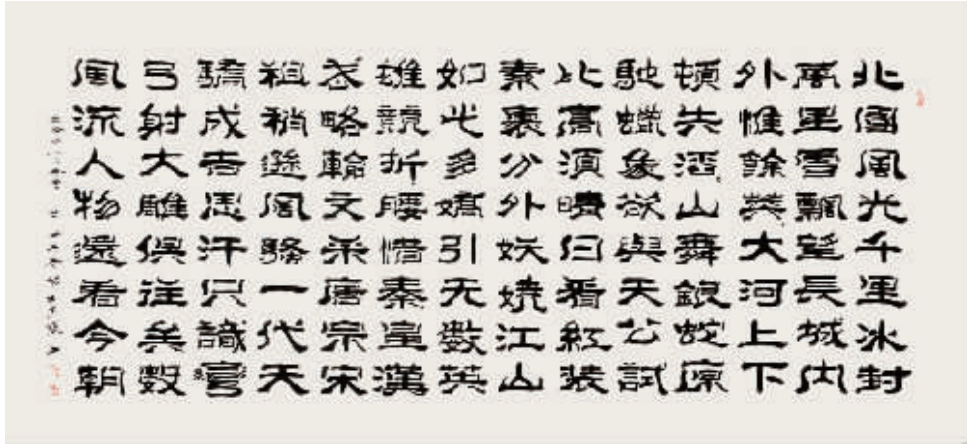 北國風光千里冰封
萬里雪飄望長城內
外惟餘莽大河上下
頓失滔山舞銀蛇原
馳蠟象欲與天公試
比高須晴日看紅裝
素裹分外妖嬈江山
如此多嬌引无數英
雄競折腰惜秦皇漢
武略輸文采唐宗宋
祖稍遜風騷一代天
驕成吉思汗只識彎
弓射大雕俱往矣數
風流人物還看今朝